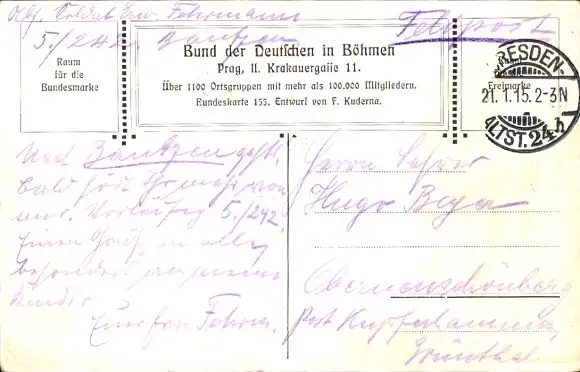 Abs. Soldat Fehrmann
5./242 Bautzen
Feldpost
Raum
für die
Bundesmarke
Bund der Deutschen in Böhmen
Prag, II. Krakauergasse 11.
Über 1100 Ortsgruppen mit mehr als 100.000 Mitgliedern.
Bundeskarte 155. Entwurf von F. Kuderna.
Freimarke
DRESDEN-
21.1.15.2-3N
ALTST.24h
Nach Bautzen
bald hört Ihr mehr von
mir. Vorläufig 5./242.
Einen Gruß an alle,
besonders an meine
Kinder
Euer Fehrm.
Herrn Lehrer
Hugo Beyer
Oberneuschönberg
Post Kupferhammer
Grünthal